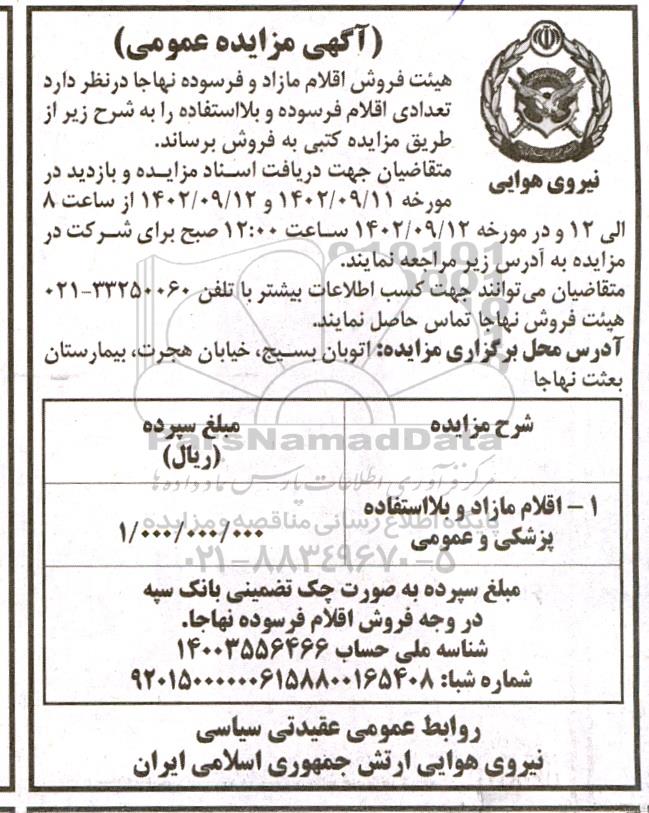 (آگهی مزایده عمومی)
نیروی هوایی
هیئت فروش اقلام مازاد و فرسوده نهاجا درنظر دارد
تعدادی اقلام فرسوده و بلااستفاده را به شرح زیر از
طریق مزایده کتبی به فروش برساند.
متقاضیان جهت دریافت اسناد مزایده و بازدید در
مورخه ۱۴۰۲/۰۹/۱۱ و ۱۴۰۲/۰۹/۱۲ از ساعت ۸
الی ۱۲ و در مورخه ۱۴۰۲/۰۹/۱۲ ساعت ۱۲:۰۰ صبح برای شرکت در
مزایده به آدرس زیر مراجعه نمایند.
متقاضیان می‌توانند جهت کسب اطلاعات بیشتر با تلفن ۳۳۲۵۰۰۶۰-۰۲۱
هیئت فروش نهاجا تماس حاصل نمایند.
آدرس محل برگزاری مزایده: اتوبان بسیج، خیابان هجرت، بیمارستان
بعثت نهاجا
شرح مزایده
مبلغ سپرده
(ریال)
ParsNamadData
مرکز فرآوری اطلاعات پارس نماد داده ها
۱- اقلام مازاد و بلااستفاده
پزشکی و عمومی
۱/۰۰۰/۰۰۰/۰۰۰
پایگاه اطلاع رسانی مناقصه و مزایده
۰۲۱-۸۸۳۴۹۶۷۰-۵
مبلغ سپرده به صورت چک تضمینی بانک سپه
در وجه فروش اقلام فرسوده نهاجا.
شناسه ملی حساب ۱۴۰۰۳۵۵۶۴۶۶
شماره شبا: ۹۲۰۱۵۰۰۰۰۰۰۶۱۵۸۸۰۰۱۶۵۴۰۸
روابط عمومی عقیدتی سیاسی
نیروی هوایی ارتش جمهوری اسلامی ایران